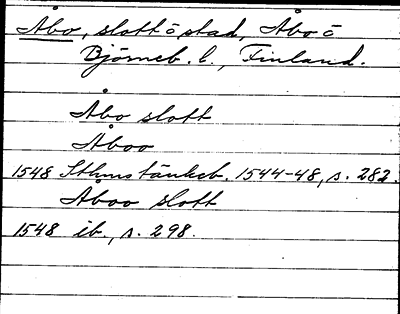 Åbo, slott o stad, Åbo o
Björneb. l., Finland.
Åbo slott
Åboo
1548 Sthms tänkeb. 1544-48, s. 282.
Aboo slott
1548 ib., s. 298.